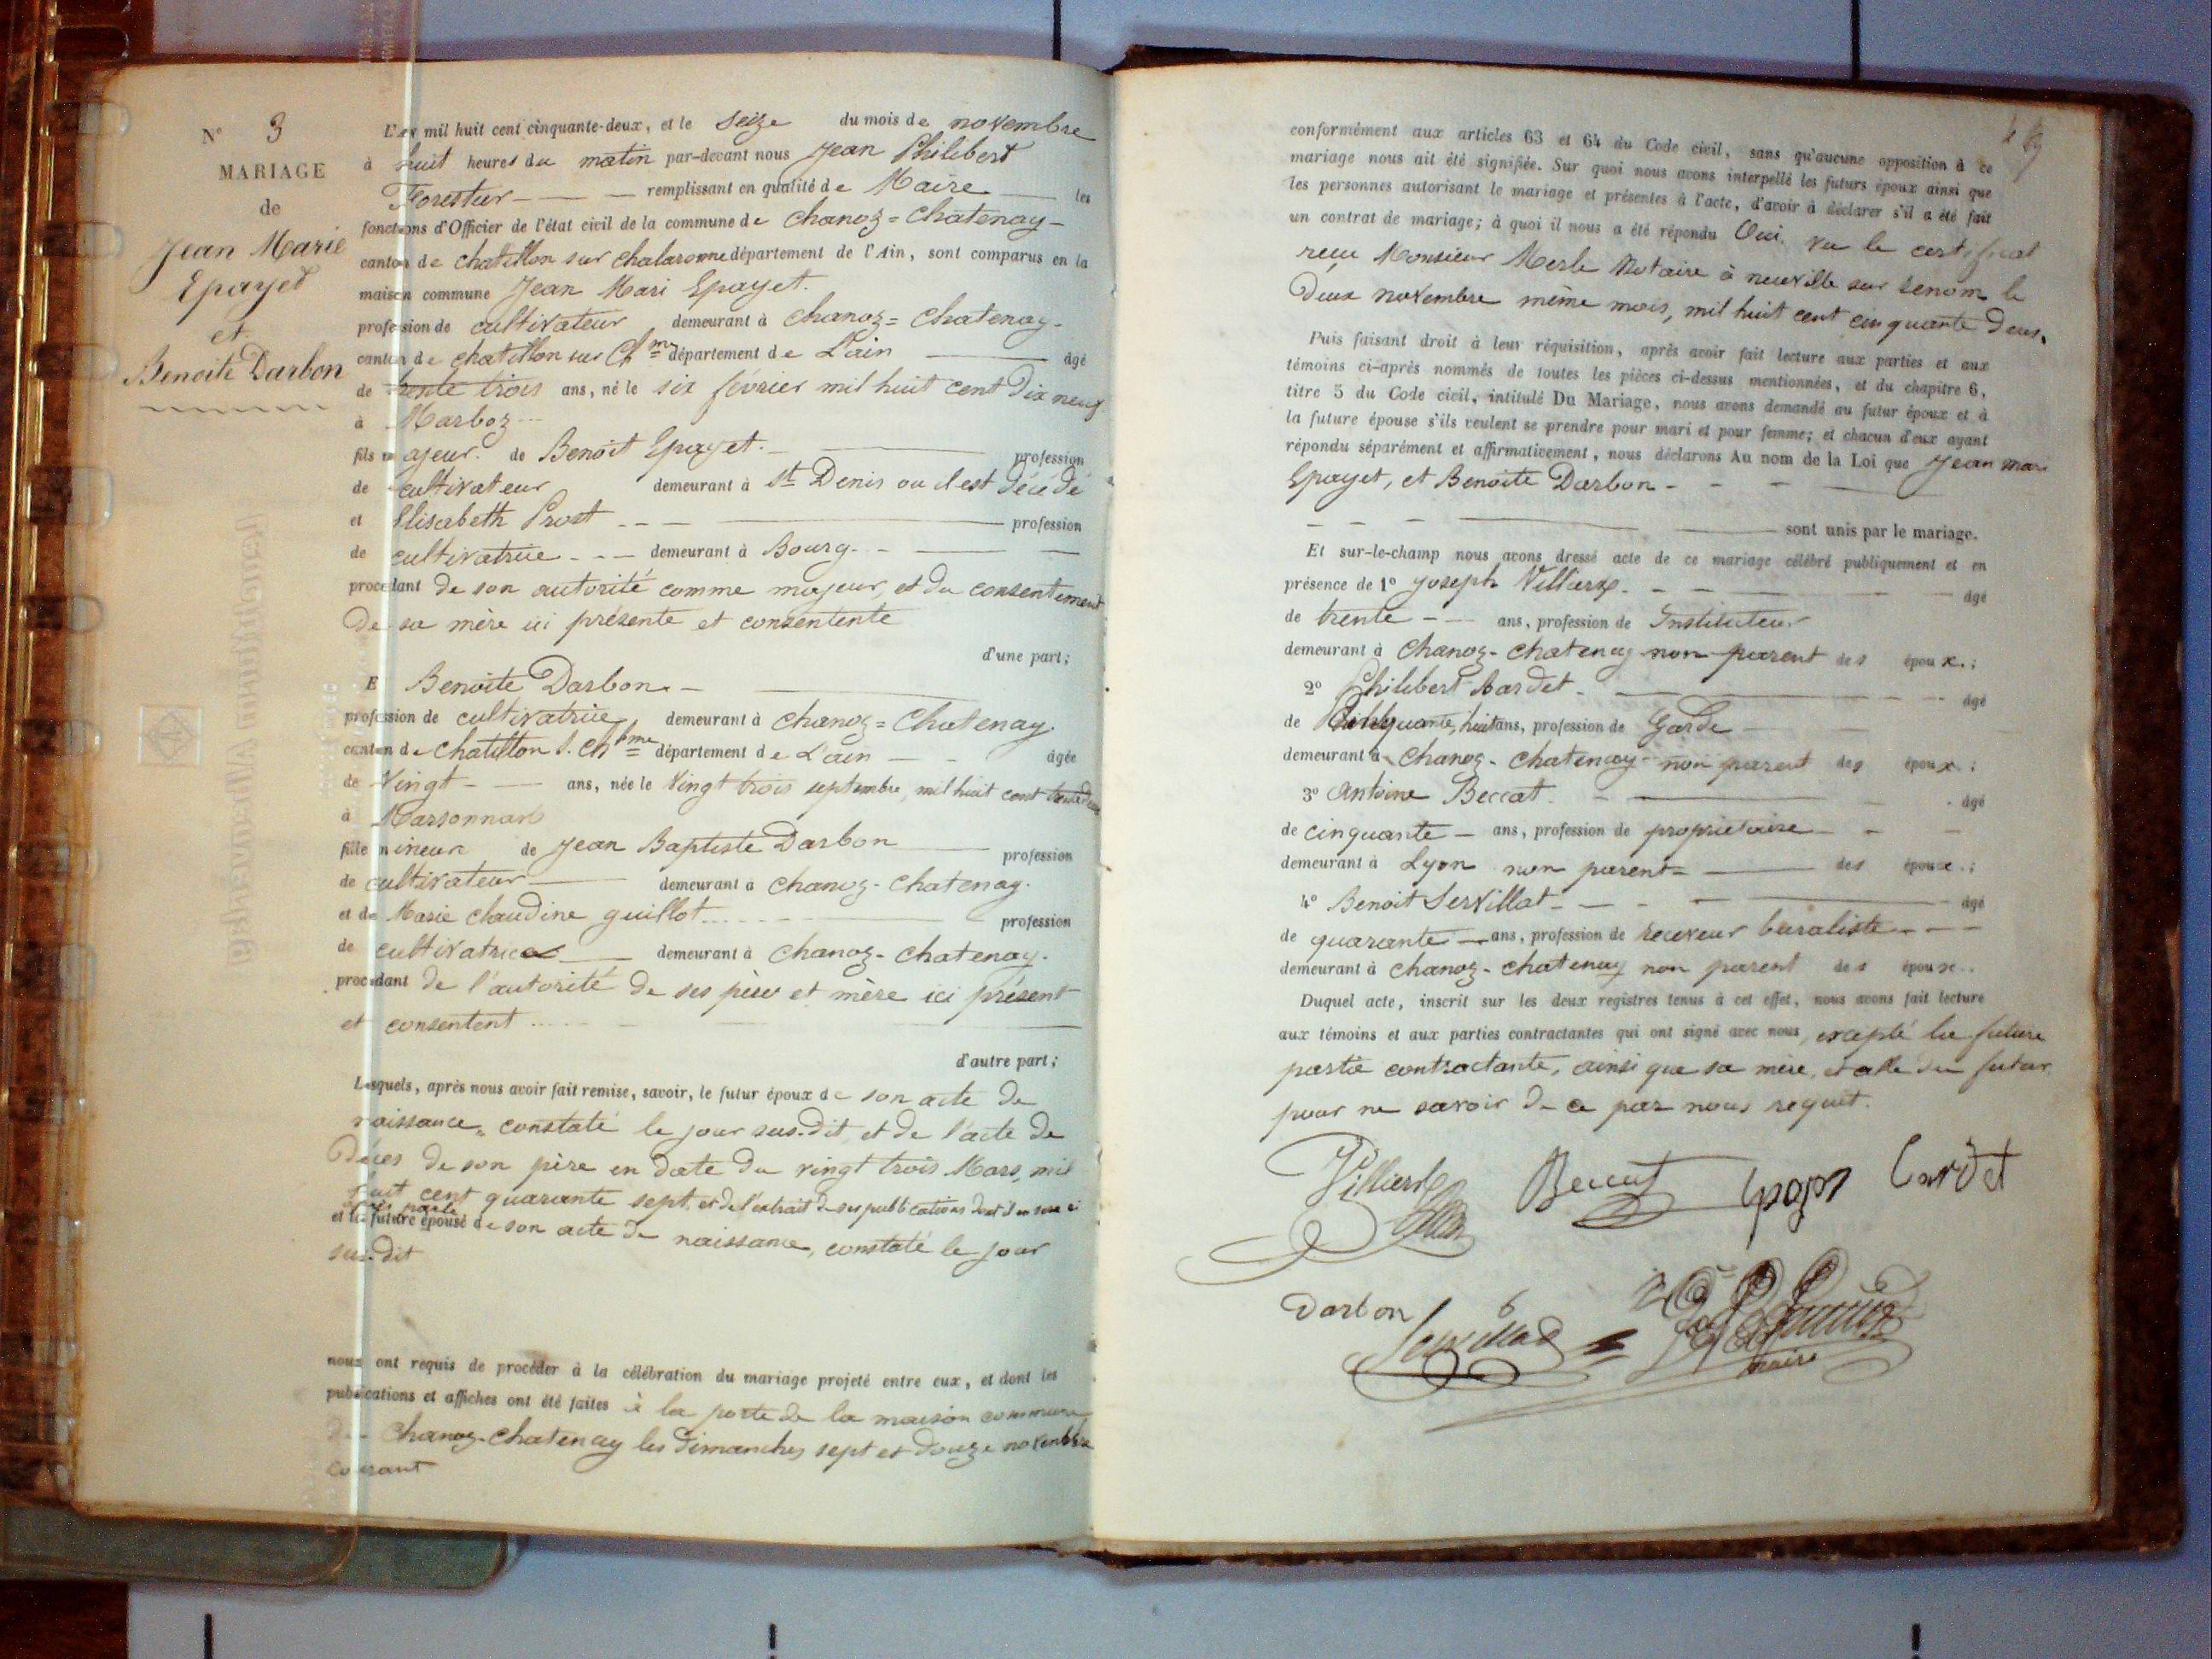 N° 3
MARIAGE
de
Jean Marie
Epayet
et
Benoite Darbon
L'an mil huit cent cinquante-deux, et le seize du mois de novembre
à huit heures du matin par-devant nous Jean Philibert
Forestier remplissant en qualité de Maire les
fonctions d'Officier de l'état civil de la commune de Chanoz=Chatenay-
canton de chatillon sur chalaronne département de l'Ain, sont comparus en la
maison commune Jean Mari Epayet.
profession de cultivateur demeurant à Chanoz=Chatenay-
canton de chatillon sur Ch^me département de L'ain âgé
de trente trois ans, né le six février mil huit cent dix neuf
à Marboz
fils majeur de Benoit Epayet. profession
de cultivateur demeurant à St Denis ou il est décédé
et Elisabeth Prost profession
de cultivatrice demeurant à Bourg
procédant de son autorité comme majeur, et du consentement
De sa mère ici présente et consentente
d'une part;
E Benoite Darbon
profession de cultivatrice demeurant à Chanoz=Chatenay.
canton de Chatillon S. Ch^me département de L'ain âgée
de Vingt ans, née le Vingt trois septembre, mil huit cent
à Marsonnas
fille mineure de Jean Baptiste Darbon profession
de cultivateur demeurant à Chanoz-Chatenay.
et de Marie claudine guillot profession
de cultivatrice demeurant à Chanoz-Chatenay.
procédant de l'autorité de ses père et mère ici présent
et consentent
d'autre part;
Lesquels, après nous avoir fait remise, savoir, le futur époux de son acte de
naissance, constaté le jour sus-dit, et de l'acte de
Décès de son père en date du vingt trois Mars, mil
huit cent quarante sept, et de l'extrait de ses publications dont il en sera ci
après parlé
et la future épouse de son acte de naissance, constaté le jour
sus-dit
nous ont requis de procéder à la célébration du mariage projeté entre eux, et dont les
publications et affiches ont été faites à la porte de la maison commune
De Chanoz-Chatenay les dimanches sept et douze novembre
courant
conformément aux articles 63 et 64 du Code civil, sans qu'aucune opposition à ce
mariage nous ait été signifiée. Sur quoi nous avons interpellé les futurs époux ainsi que
les personnes autorisant le mariage et présentes à l'acte, d'avoir à déclarer s'il a été fait
un contrat de mariage; à quoi il nous a été répondu Oui. vu le certificat
reçu Monsieur Merle Notaire à neuville sur Renom le
Deux novembre même mois, mil huit cent cinquante deux.
Puis faisant droit à leur réquisition, après avoir fait lecture aux parties et aux
témoins ci-après nommés de toutes les pièces ci-dessus mentionnées, et du chapitre 6,
titre 5 du Code civil, intitulé Du Mariage, nous avons demandé au futur époux et à
la future épouse s'ils veulent se prendre pour mari et pour femme; et chacun d'eux ayant
répondu séparément et affirmativement, nous déclarons Au nom de la Loi que Jean mari
Epayet, et Benoite Darbon
sont unis par le mariage.
Et sur-le-champ nous avons dressé acte de ce mariage célébré publiquement et en
présence de 1° Joseph Villierx âgé
de trente ans, profession de Instituteur
demeurant à Chanoz-Chatenay non parent des époux.;
2° Philibert Bardet âgé
de Cinquante, huit ans, profession de Garde
demeurant à Chanoz-Chatenay non parent des époux;
3° Antoine Beccat. âgé
de cinquante ans, profession de proprietaire
demeurant à Lyon non parent des époux.;
4° Benoit Servillat âgé
de quarante ans, profession de receveur buraliste
demeurant à Chanoz-Chatenay non parent des époux.
Duquel acte, inscrit sur les deux registres tenus à cet effet, nous avons fait lecture
aux témoins et aux parties contractantes qui ont signé avec nous, excepté la future
partie contractante, ainsi que sa mère, et celle du futur
pour ne savoir de ce par nous requit.
Darbon
Servillat
maire